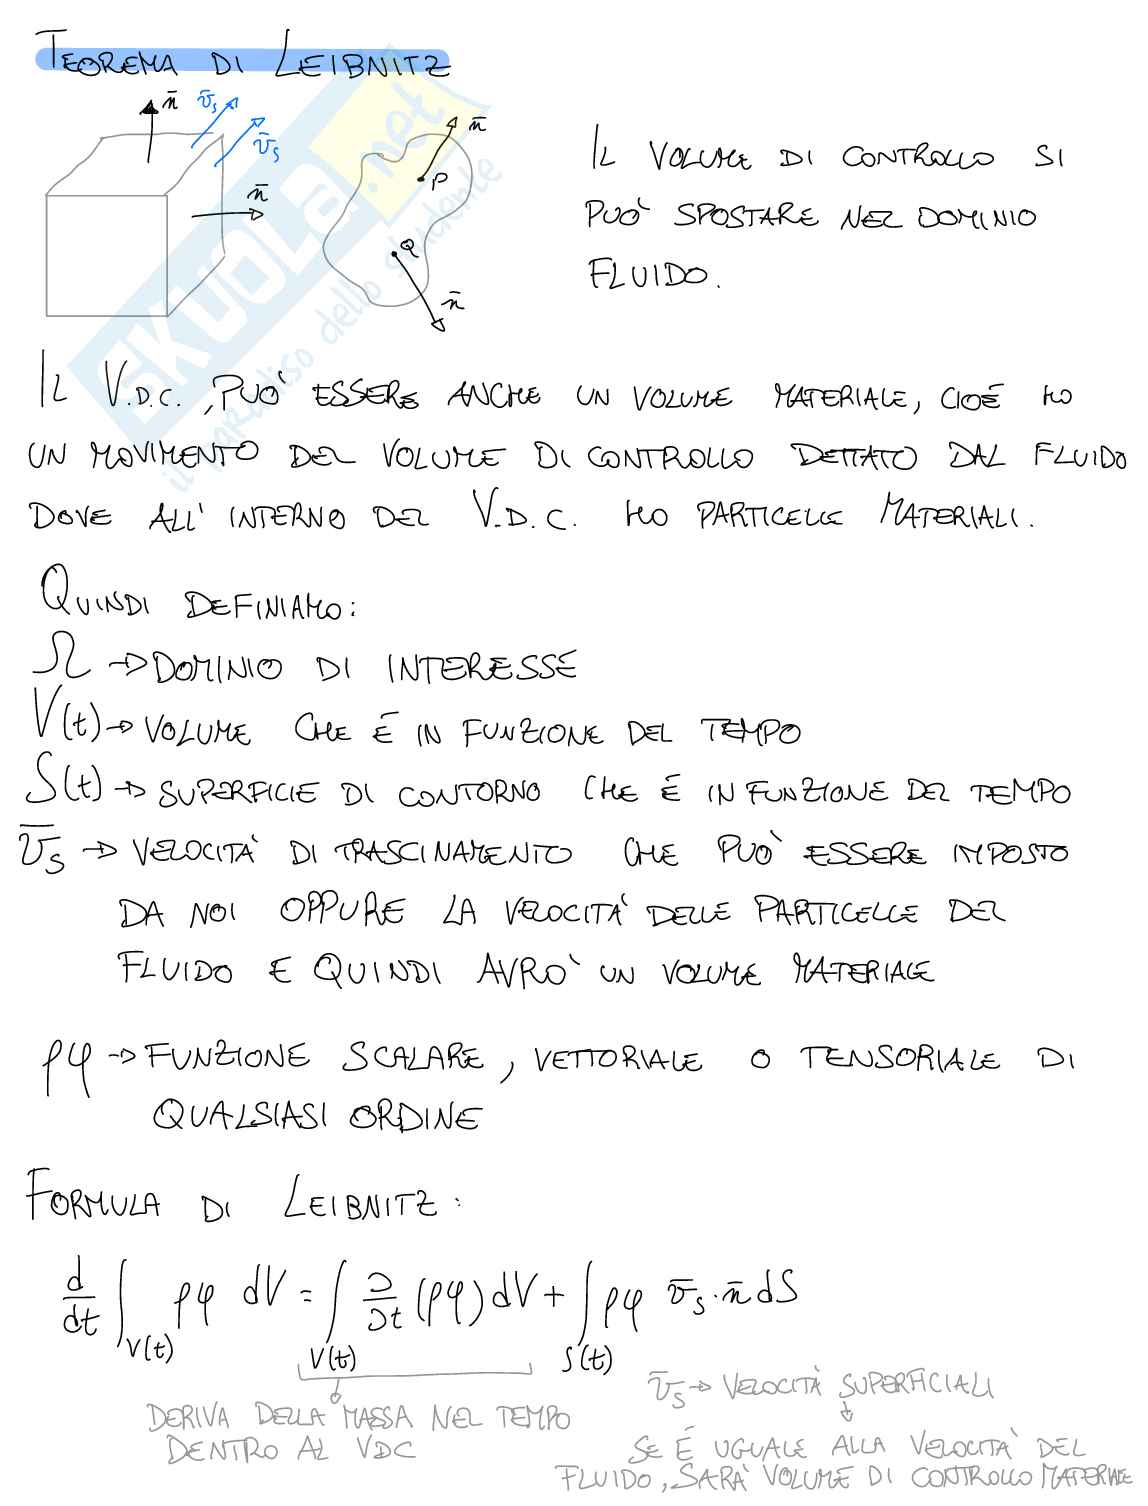 TEOREMA DI LEIBNITZ
n̄
v̄s
v̄s
n̄
n̄
P
Q
n̄
IL VOLUME DI CONTROLLO SI
PUO' SPOSTARE NEL DOMINIO
FLUIDO.
SKUOLA.net
il paradiso dello studente
IL V.D.C., PUO' ESSERE ANCHE UN VOLUME MATERIALE, CIOÉ HO
UN MOVIMENTO DEL VOLUME DI CONTROLLO DETTATO DAL FLUIDO
DOVE ALL'INTERNO DEL V.D.C. HO PARTICELLE MATERIALI.
QUINDI DEFINIAMO:
Ω → DOMINIO DI INTERESSE
V(t) → VOLUME CHE É IN FUNZIONE DEL TEMPO
S(t) → SUPERFICIE DI CONTORNO CHE É IN FUNZIONE DEL TEMPO
v̄s → VELOCITA' DI TRASCINAMENTO CHE PUO' ESSERE IMPOSTO
DA NOI OPPURE LA VELOCITA' DELLE PARTICELLE DEL
FLUIDO E QUINDI AVRO' UN VOLUME MATERIALE
ρφ → FUNZIONE SCALARE, VETTORIALE O TENSORIALE DI
QUALSIASI ORDINE
FORMULA DI LEIBNITZ:
d/dt ∫V(t) ρφ dV = ∫V(t) ∂/∂t (ρφ) dV + ∫S(t) ρφ v̄s · n̄ dS
DERIVA DELLA MASSA NEL TEMPO
DENTRO AL VDC
v̄s → VELOCITÀ SUPERFICIALI
SE É UGUALE ALLA VELOCITA' DEL
FLUIDO, SARA' VOLUME DI CONTROLLO MATERIALE